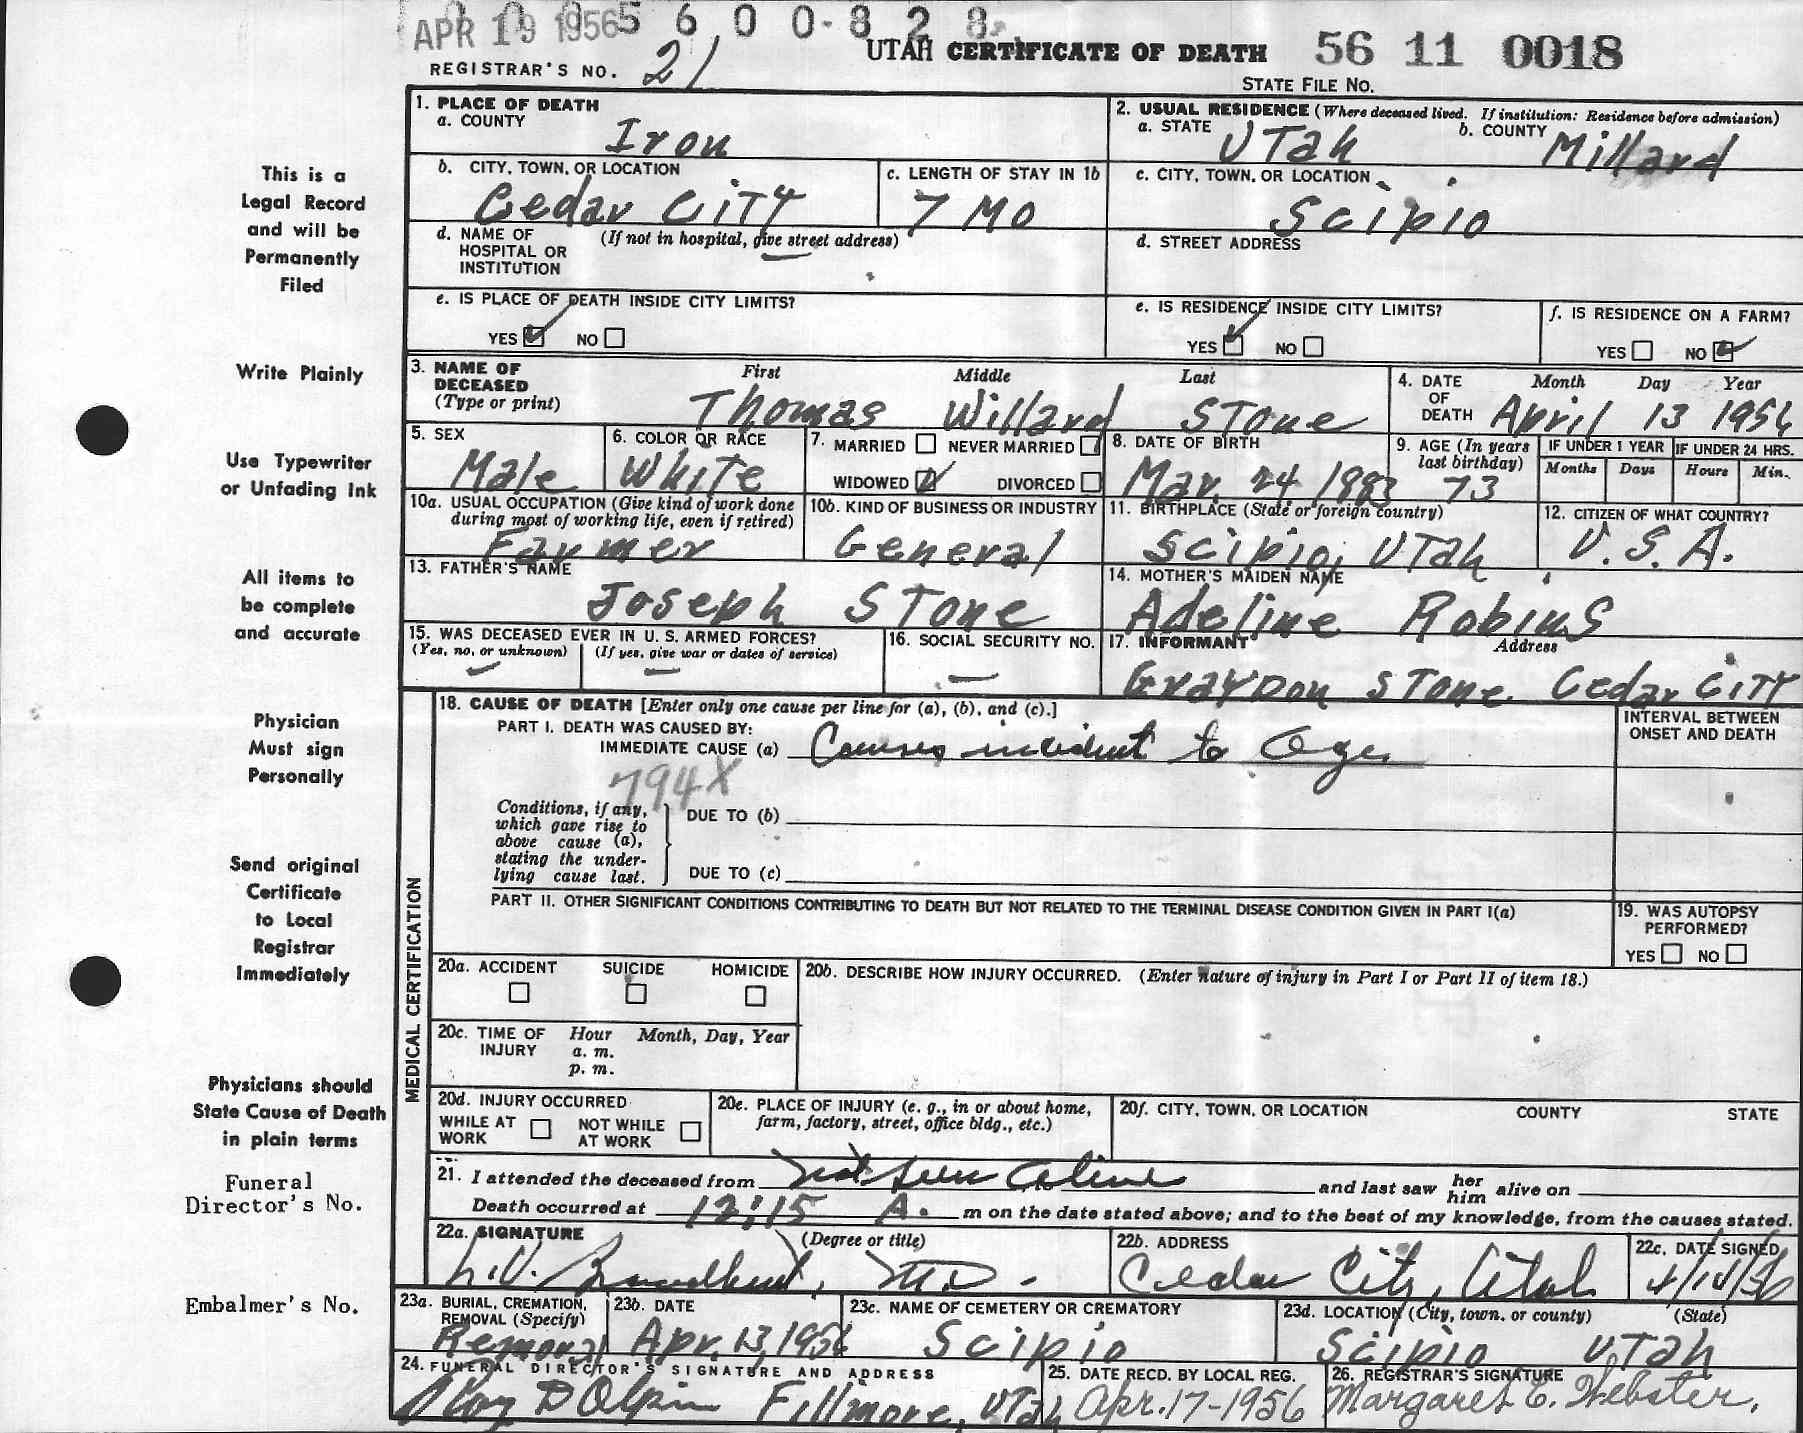 APR 19 1956 5 6 0 0 - 8 2 8
UTAH CERTIFICATE OF DEATH 56 11 0018
REGISTRAR'S NO. 21
STATE FILE NO.
1. PLACE OF DEATH
a. COUNTY
Iron
2. USUAL RESIDENCE (Where deceased lived. If institution: Residence before admission)
a. STATE Utah b. COUNTY Millard
b. CITY, TOWN, OR LOCATION
Cedar City
c. LENGTH OF STAY IN 1b
7 Mo
c. CITY, TOWN, OR LOCATION
Scipio
d. NAME OF HOSPITAL OR INSTITUTION (If not in hospital, give street address)
d. STREET ADDRESS
e. IS PLACE OF DEATH INSIDE CITY LIMITS?
YES ☑ NO ☐
e. IS RESIDENCE INSIDE CITY LIMITS?
YES ☑ NO ☐
f. IS RESIDENCE ON A FARM?
YES ☐ NO ☑
3. NAME OF DECEASED (Type or print)
First Middle Last
Thomas Willard Stone
4. DATE OF DEATH
Month Day Year
April 13 1956
5. SEX
Male
6. COLOR OR RACE
White
7. MARRIED ☐ NEVER MARRIED ☐
WIDOWED ☑ DIVORCED ☐
8. DATE OF BIRTH
Mar. 24 1883
9. AGE (In years last birthday)
73
IF UNDER 1 YEAR
Months Days
IF UNDER 24 HRS.
Hours Min.
10a. USUAL OCCUPATION (Give kind of work done during most of working life, even if retired)
Farmer
10b. KIND OF BUSINESS OR INDUSTRY
General
11. BIRTHPLACE (State or foreign country)
Scipio, Utah
12. CITIZEN OF WHAT COUNTRY?
U.S.A.
13. FATHER'S NAME
Joseph Stone
14. MOTHER'S MAIDEN NAME
Adeline Robins
15. WAS DECEASED EVER IN U. S. ARMED FORCES?
(Yes, no, or unknown) (If yes, give war or dates of service)
— —
16. SOCIAL SECURITY NO.
—
17. INFORMANT Address
Graydon Stone Cedar City
18. CAUSE OF DEATH [Enter only one cause per line for (a), (b), and (c).]
PART I. DEATH WAS CAUSED BY:
IMMEDIATE CAUSE (a) Causes incident to age.
794X
Conditions, if any, which gave rise to above cause (a), stating the underlying cause last.
DUE TO (b)
DUE TO (c)
INTERVAL BETWEEN ONSET AND DEATH
PART II. OTHER SIGNIFICANT CONDITIONS CONTRIBUTING TO DEATH BUT NOT RELATED TO THE TERMINAL DISEASE CONDITION GIVEN IN PART I(a)
19. WAS AUTOPSY PERFORMED?
YES ☐ NO ☐
20a. ACCIDENT SUICIDE HOMICIDE
☐ ☐ ☐
20b. DESCRIBE HOW INJURY OCCURRED. (Enter nature of injury in Part I or Part II of item 18.)
20c. TIME OF INJURY Hour Month, Day, Year
a. m.
p. m.
20d. INJURY OCCURRED
WHILE AT WORK ☐ NOT WHILE AT WORK ☐
20e. PLACE OF INJURY (e. g., in or about home, farm, factory, street, office bldg., etc.)
20f. CITY, TOWN, OR LOCATION COUNTY STATE
21. I attended the deceased from Not seen alive and last saw her him alive on
Death occurred at 12:15 A. m on the date stated above; and to the best of my knowledge, from the causes stated.
22a. SIGNATURE (Degree or title)
L.V. Broadbent, M.D.
22b. ADDRESS
Cedar City, Utah
22c. DATE SIGNED
4/14/56
23a. BURIAL, CREMATION, REMOVAL (Specify)
Removal
23b. DATE
Apr. 13, 1956
23c. NAME OF CEMETERY OR CREMATORY
Scipio
23d. LOCATION (City, town, or county) (State)
Scipio Utah
24. FUNERAL DIRECTOR'S SIGNATURE AND ADDRESS
Olpin Fillmore, Utah
25. DATE RECD. BY LOCAL REG.
Apr. 17-1956
26. REGISTRAR'S SIGNATURE
Margaret E. Webster.
This is a
Legal Record
and will be
Permanently
Filed
Write Plainly
Use Typewriter
or Unfading Ink
All items to
be complete
and accurate
Physician
Must sign
Personally
Send original
Certificate
to Local
Registrar
Immediately
Physicians should
State Cause of Death
in plain terms
Funeral
Director's No.
Embalmer's No.
MEDICAL CERTIFICATION